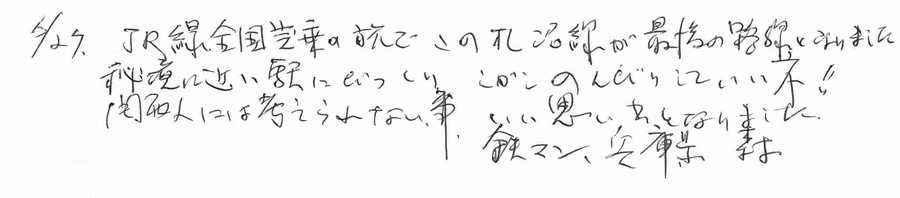 6/27. JR線全国完乗の旅でこの札沼線が最後の路線となりました
秘境に近い駅にびっくり しかしのんびりしていい所!!
関西人には考えられない事. いい思い出となりました.
鉄マン、兵庫県 森本